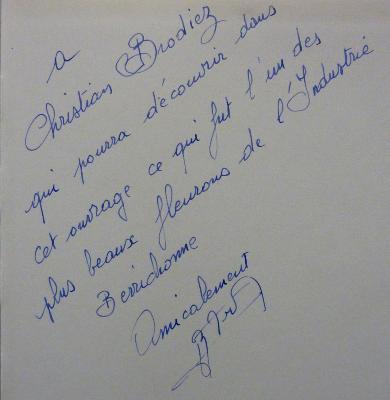 a
Christian Brodiez
qui pourra découvrir dans
cet ouvrage ce qui fut l'un des
plus beaux fleurons de l'Industrie
Berrichonne
Amicalement